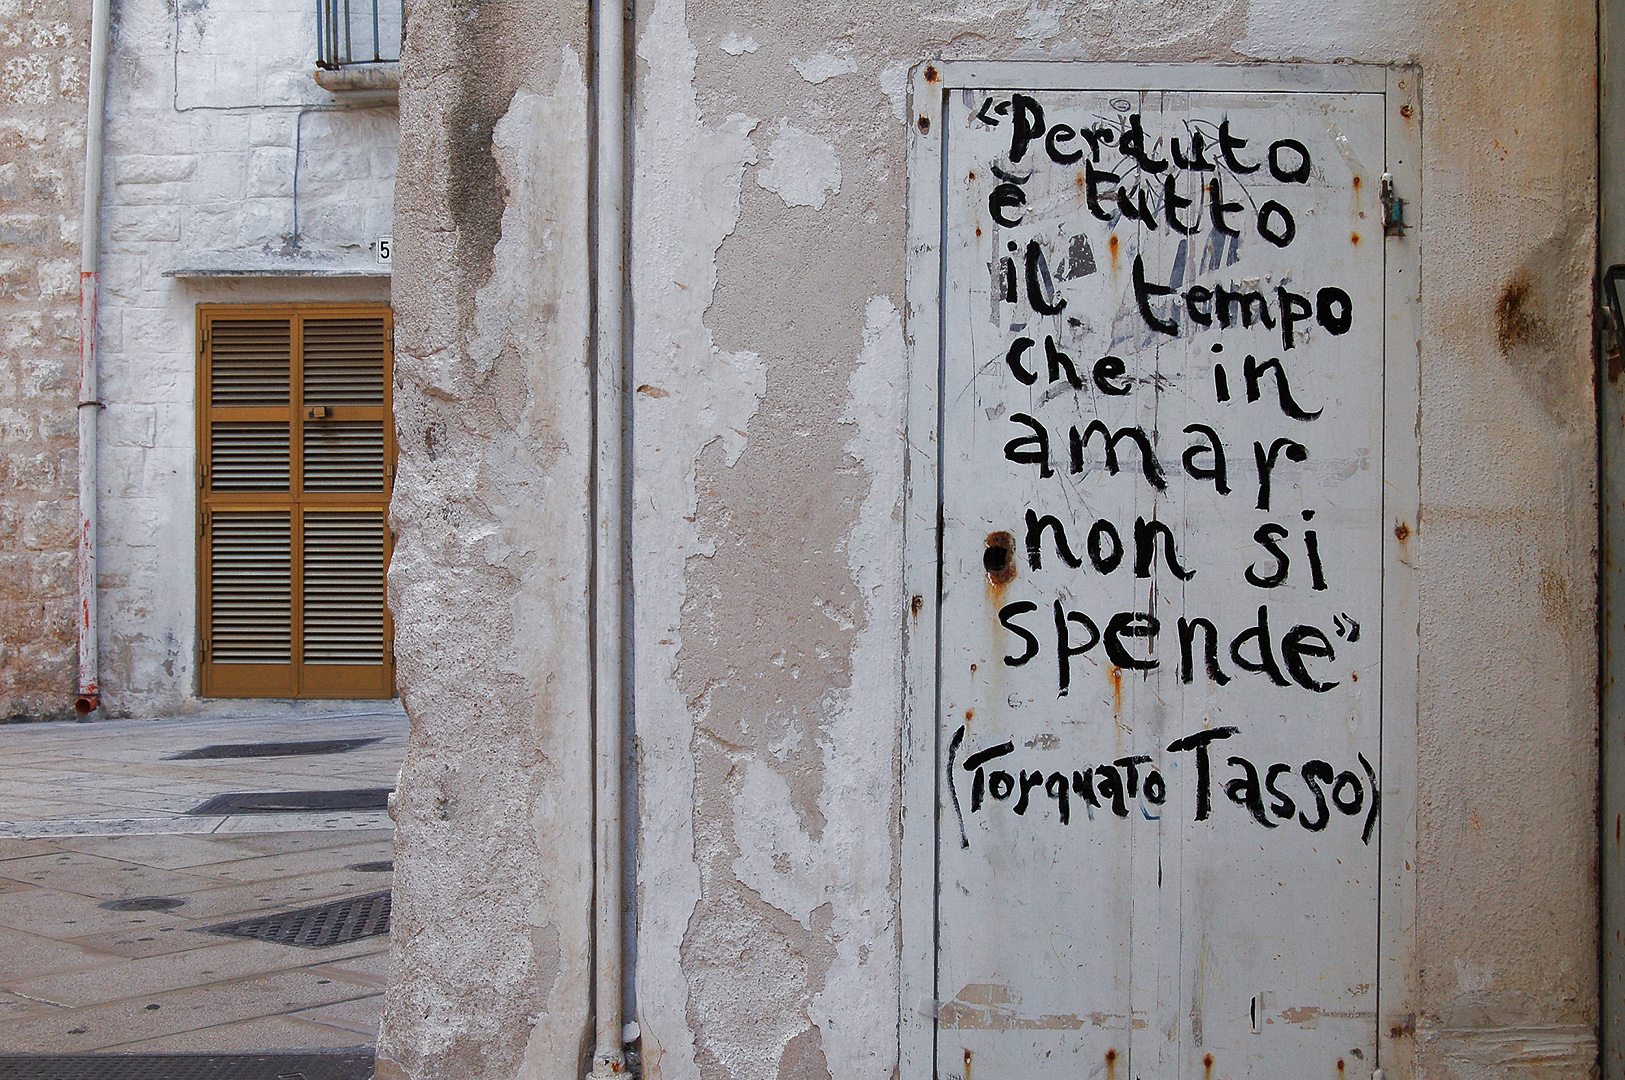 5
“Perduto
è tutto
il tempo
che in
amar
non si
spende”
(Torquato Tasso)